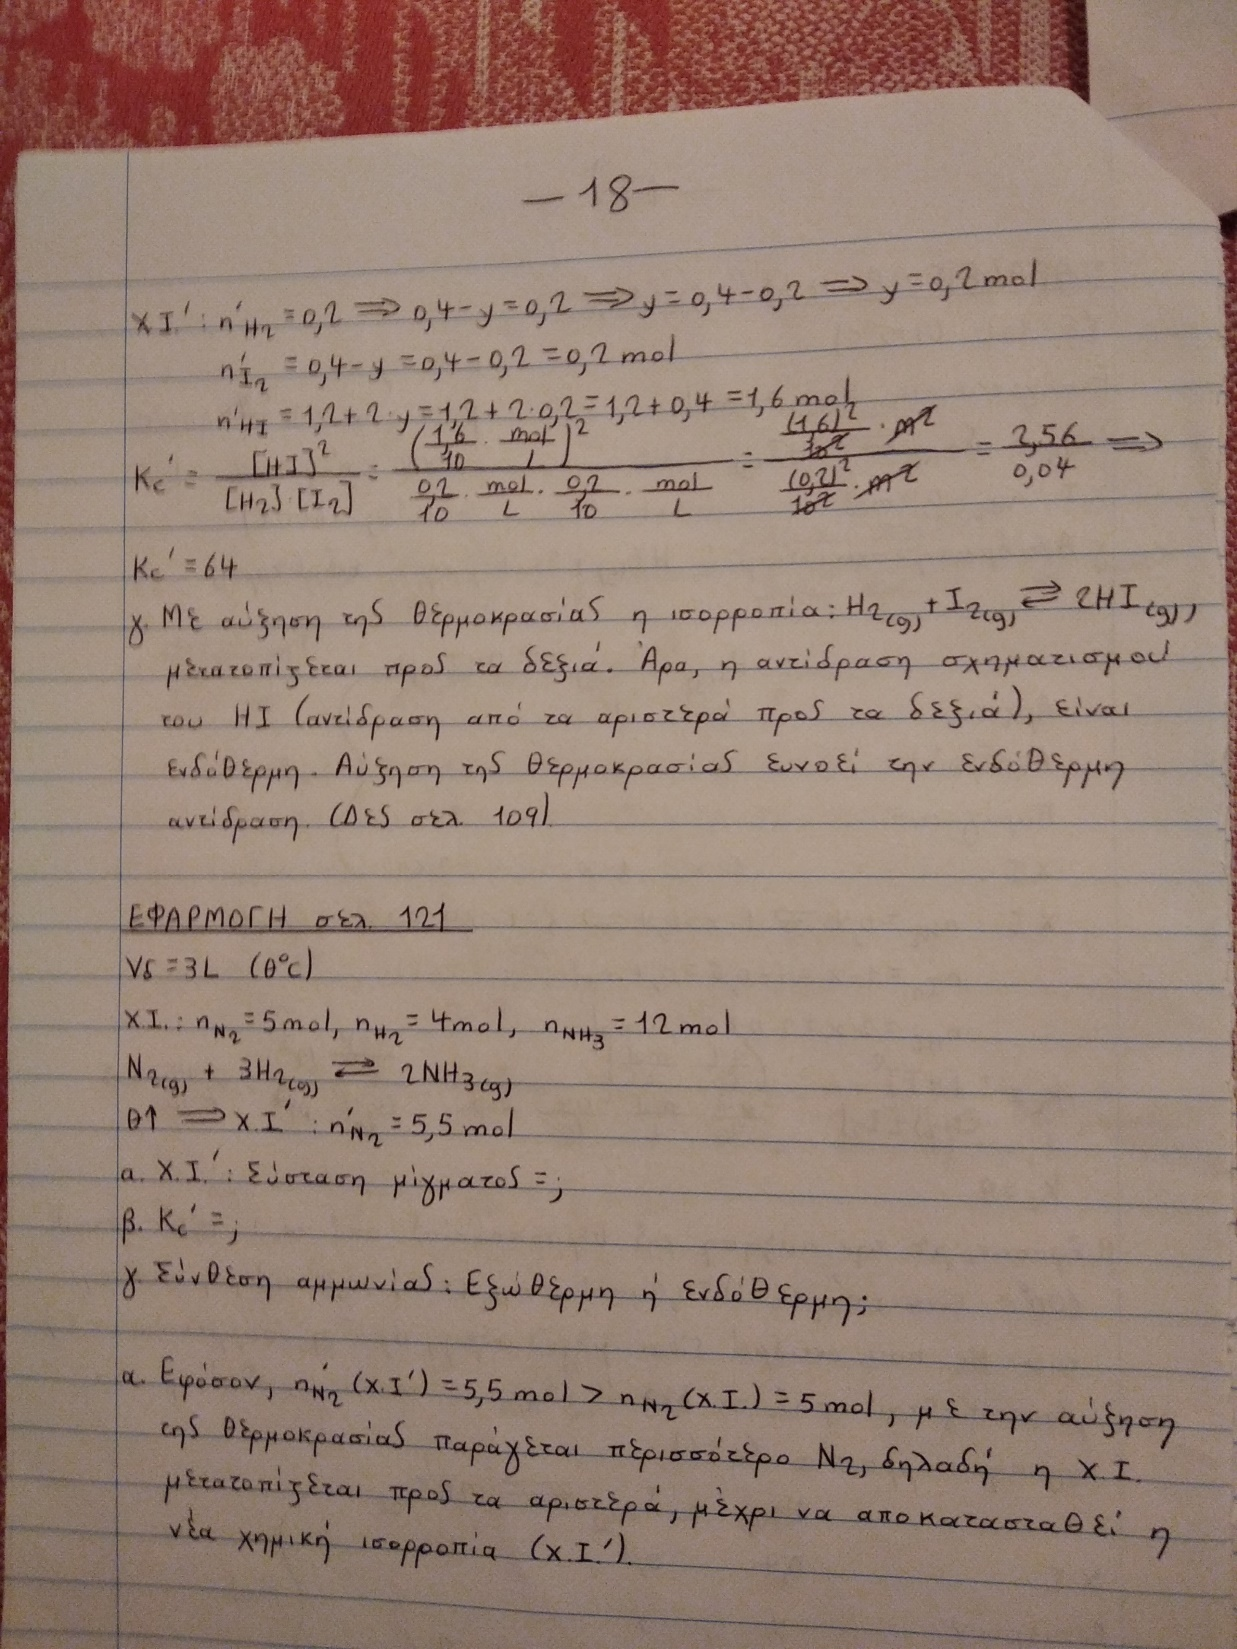 —18—
Χ.Ι.': n'H2 = 0,2 ⟹ 0,4 - y = 0,2 ⟹ y = 0,4 - 0,2 ⟹ y = 0,2 mol
n'I2 = 0,4 - y = 0,4 - 0,2 = 0,2 mol
n'HI = 1,2 + 2·y = 1,2 + 2·0,2 = 1,2 + 0,4 = 1,6 mol
Kc' = [HI]²/[H2]·[I2] = (1,6/10 · mol/L)² / 0,2/10 · mol/L · 0,2/10 · mol/L = (1,6)²/10² · M² / (0,2)²/10² · M² = 2,56/0,04 ⟹
Kc' = 64
γ. Με αύξηση της θερμοκρασίας η ισορροπία: H2(g) + I2(g) ⇄ 2HI(g),
μετατοπίζεται προς τα δεξιά. Άρα, η αντίδραση σχηματισμού
του HI (αντίδραση από τα αριστερά προς τα δεξιά), είναι
ενδόθερμη. Αύξηση της θερμοκρασίας ευνοεί την ενδόθερμη
αντίδραση. (Δες σελ. 109).
ΕΦΑΡΜΟΓΗ σελ. 121
Vδ = 3L (θ°C)
Χ.Ι.: nN2 = 5 mol, nH2 = 4 mol, nNH3 = 12 mol
N2(g) + 3H2(g) ⇄ 2NH3(g)
θ↑ ⟹ Χ.Ι.' : n'N2 = 5,5 mol
α. Χ.Ι.': Σύσταση μίγματος = ;
β. Kc' = ;
γ. Σύνθεση αμμωνίας: Εξώθερμη ή ενδόθερμη;
α. Εφόσον, n'N2 (Χ.Ι.') = 5,5 mol > nN2 (Χ.Ι.) = 5 mol, με την αύξηση
της θερμοκρασίας παράγεται περισσότερο N2, δηλαδή η Χ.Ι.
μετατοπίζεται προς τα αριστερά, μέχρι να αποκατασταθεί η
νέα χημική ισορροπία (Χ.Ι.').